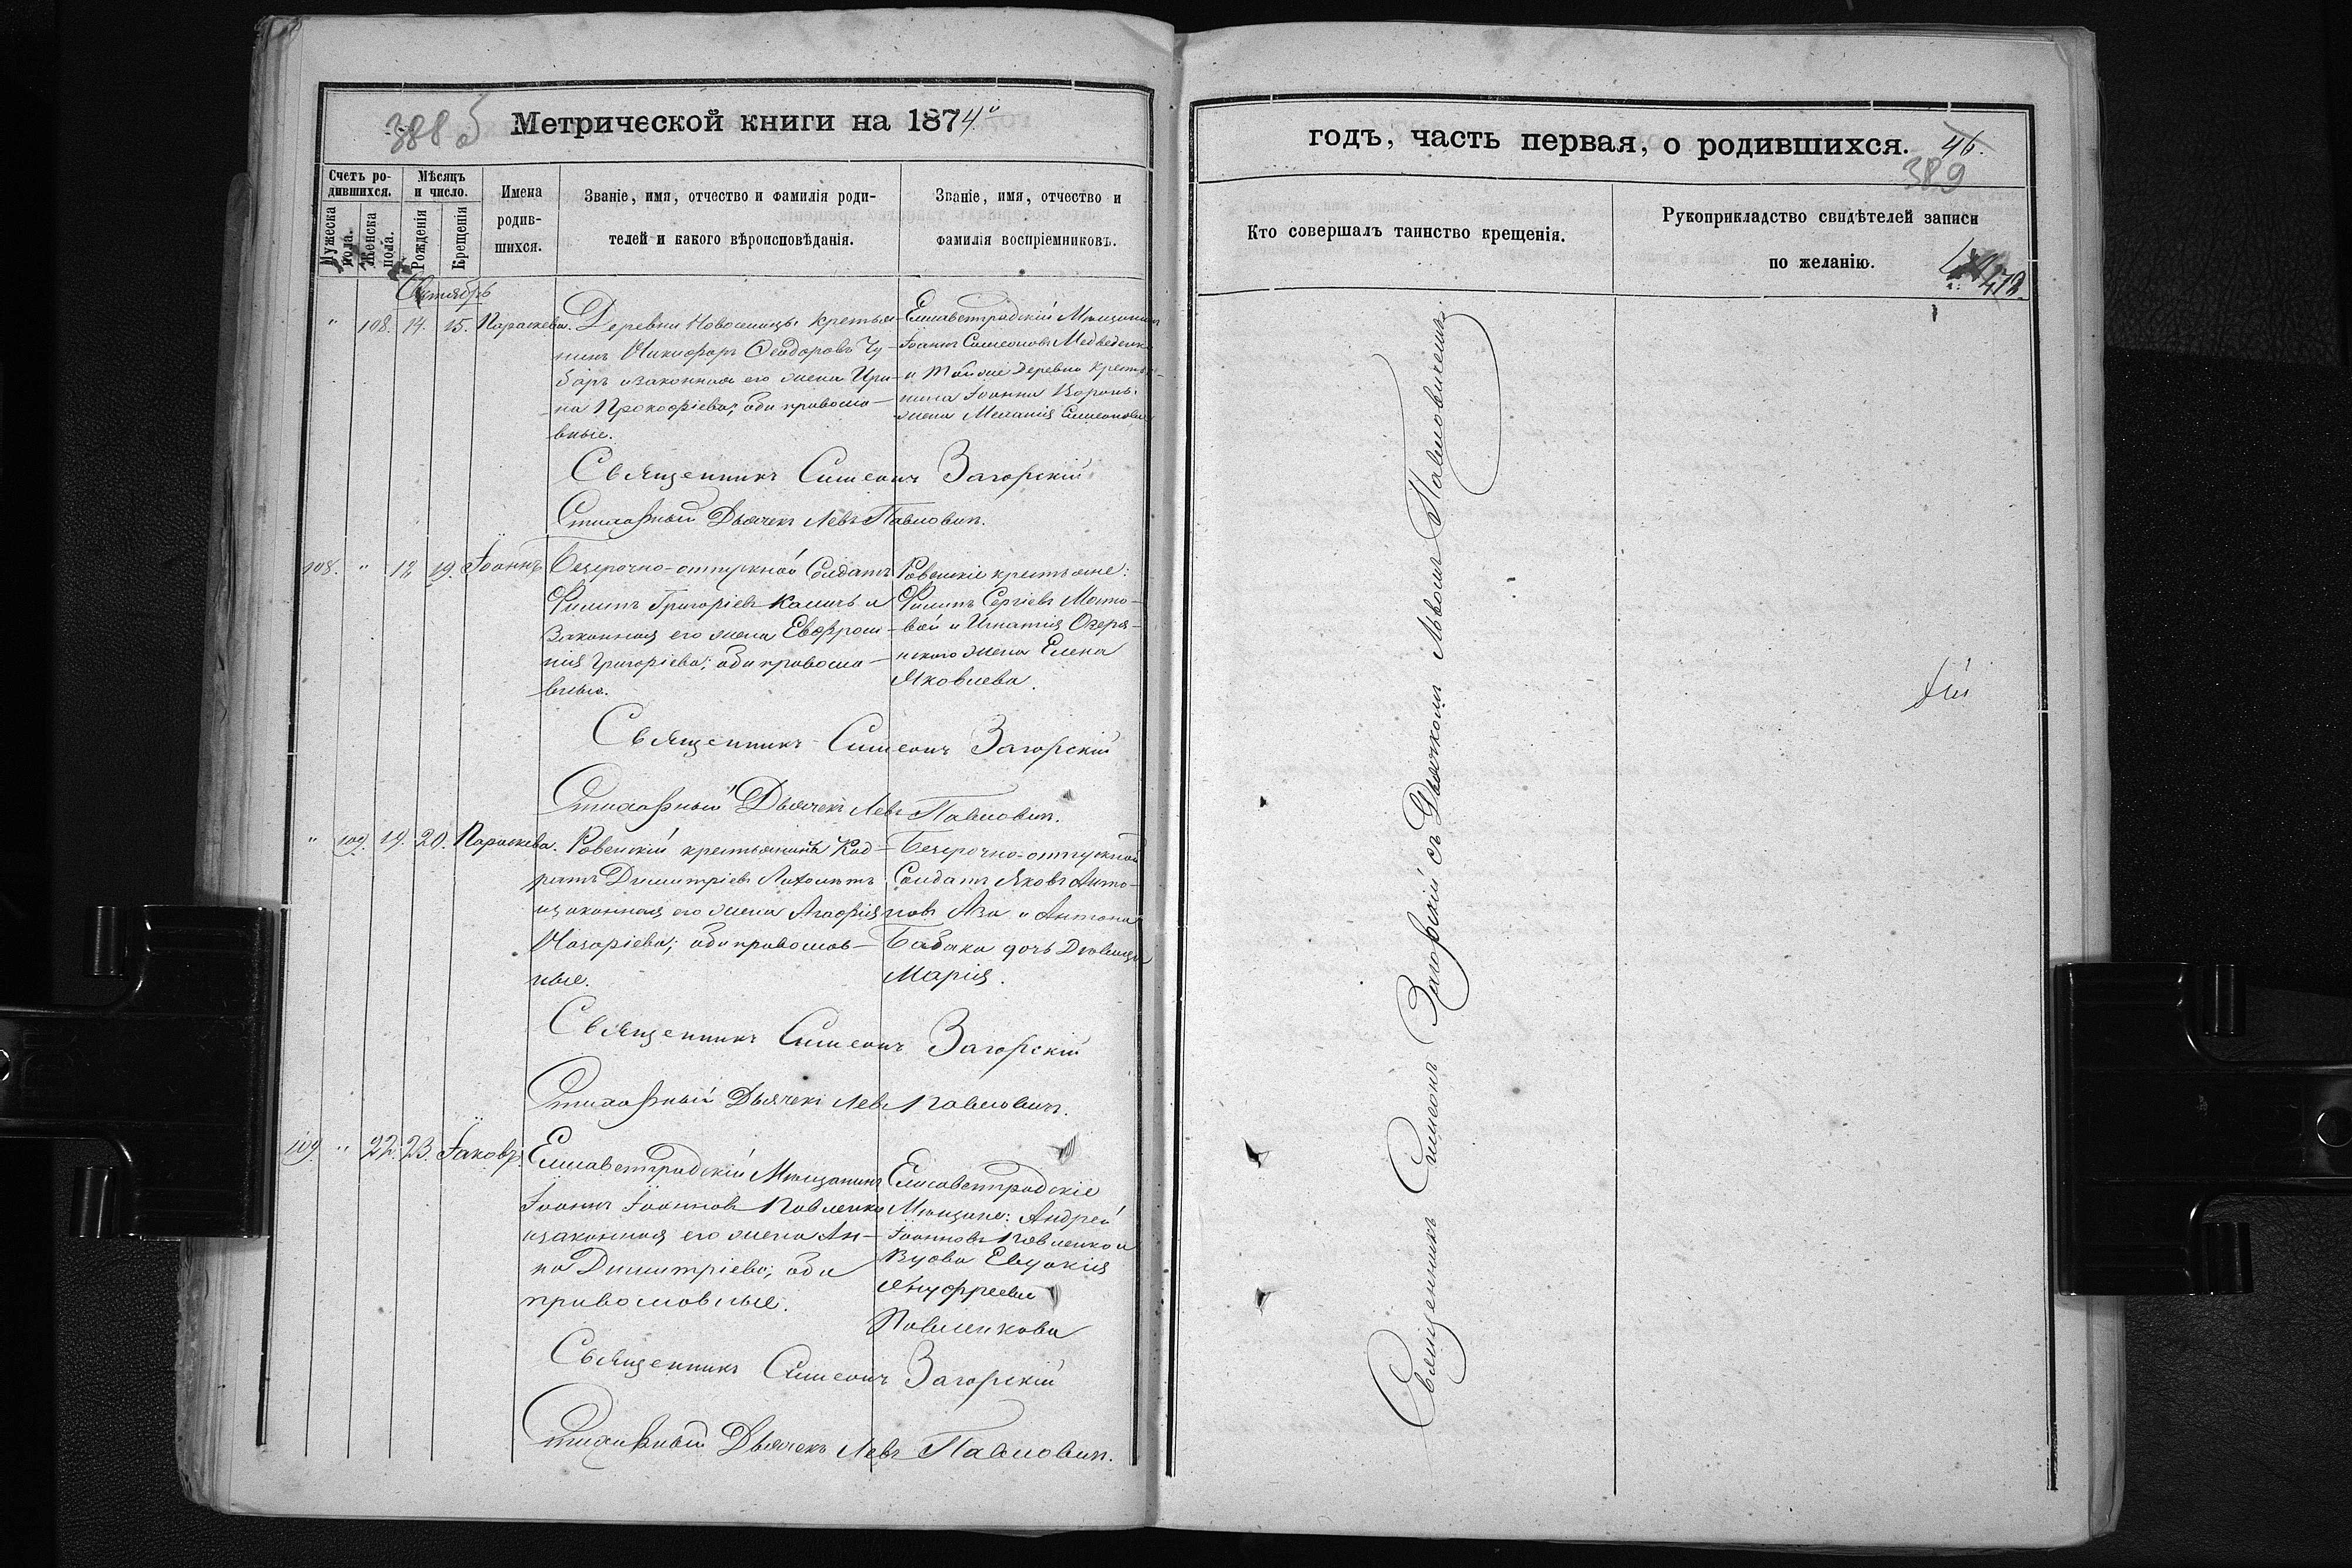 388 б Метрической книги на 1874й
Счетъ ро-
дившихся.
Мѣсяцъ
и число.
Мужеска пола.
Женска пола.
Рожденія
Крещенія
Имена
родив-
шихся.
Званіе, имя, отчество и фамилія роди-
телей и какого вѣроисповѣданія.
Званіе, имя, отчество и
фамилія воспріемниковъ.
Октябрь
" 108. 14. 15. Параскева.
Деревни Новоселицы крестья-
нинъ Никифоръ Ѳеодоровъ Чу-
баръ и законная его жена Ири-
на Прокофіева; оба правосла-
вные.
Елисаветградскій Мѣщанинъ
Іоаннъ Симеоновъ Медведенко
и той же деревни крестья-
нина Іоанна Вороны
жена Меланія Симеонова
Священникъ Симеонъ Загорскій
Стихарный Дьячекъ Левъ Павловичъ.
108. " 18. 19. Іоаннъ
Безсрочно-отпускной Солдатъ
Филипъ Григоріевъ Каличъ и
законная его жена Евфроси-
нія Григоріева; оба правосла-
вные.
Ровенскіе крестьяне:
Филипъ Сергіевъ
и Игнатія
жена Елена
Яковлева.
Священникъ Симеонъ Загорскій
Стихарный Дьячекъ Левъ Павловичъ.
" 109. 19. 20. Параскева.
Ровенскій крестьянинъ Код-
ратъ Димитріевъ
и законная его жена Агафія
Назаріева; оба православ-
ные.
Безсрочно-отпускной
Солдатъ Яковъ Анто-
новъ и Антона
Бабака дочь Дѣвица
Марія.
Священникъ Симеонъ Загорскій
Стихарный Дьячекъ Левъ Павловичъ.
109. " 22. 23. Іаковъ.
Елисаветградскій Мѣщанинъ
Іоаннъ Іоанновъ Павленко
и законная его жена Ан-
на Димитріева; оба
православные.
Елисаветградскіе
Мѣщане: Андрей
Іоанновъ Павленко и
Вдова Евдокія
Онуфріева
Павленкова
Священникъ Симеонъ Загорскій
Стихарный Дьячекъ Левъ Павловичъ.
годъ, часть первая, о родившихся. 46.
389
Кто совершалъ таинство крещенія.
Рукоприкладство свидѣтелей записи
по желанію.
Священникъ Симеонъ Загорскій съ Дьячкомъ Львомъ Павловичемъ.